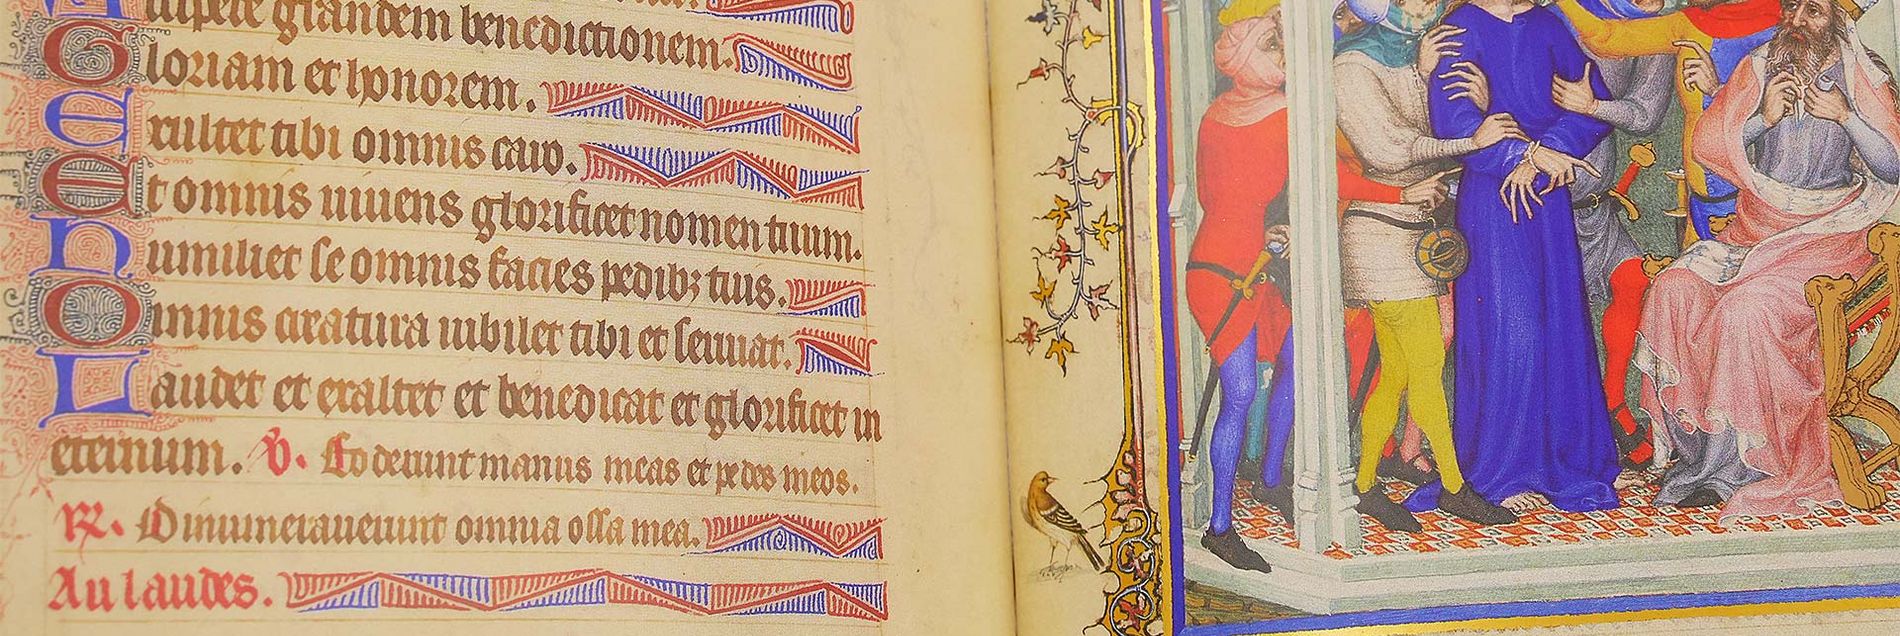 grandem benedictionem.
Gloriam et honorem.
Exultet tibi omnis caro.
Et omnis uiuens glorificet nomen tuum.
Humiliet se omnis facies pedibꝫ tuis.
Omnis creatura iubilet tibi et seruiat.
Laudet et exaltet et benedicat et glorificet in
eternum. ℣. Foderunt manus meas et pedes meos.
℟. Dinumerauerunt omnia ossa mea.
Au laudes.